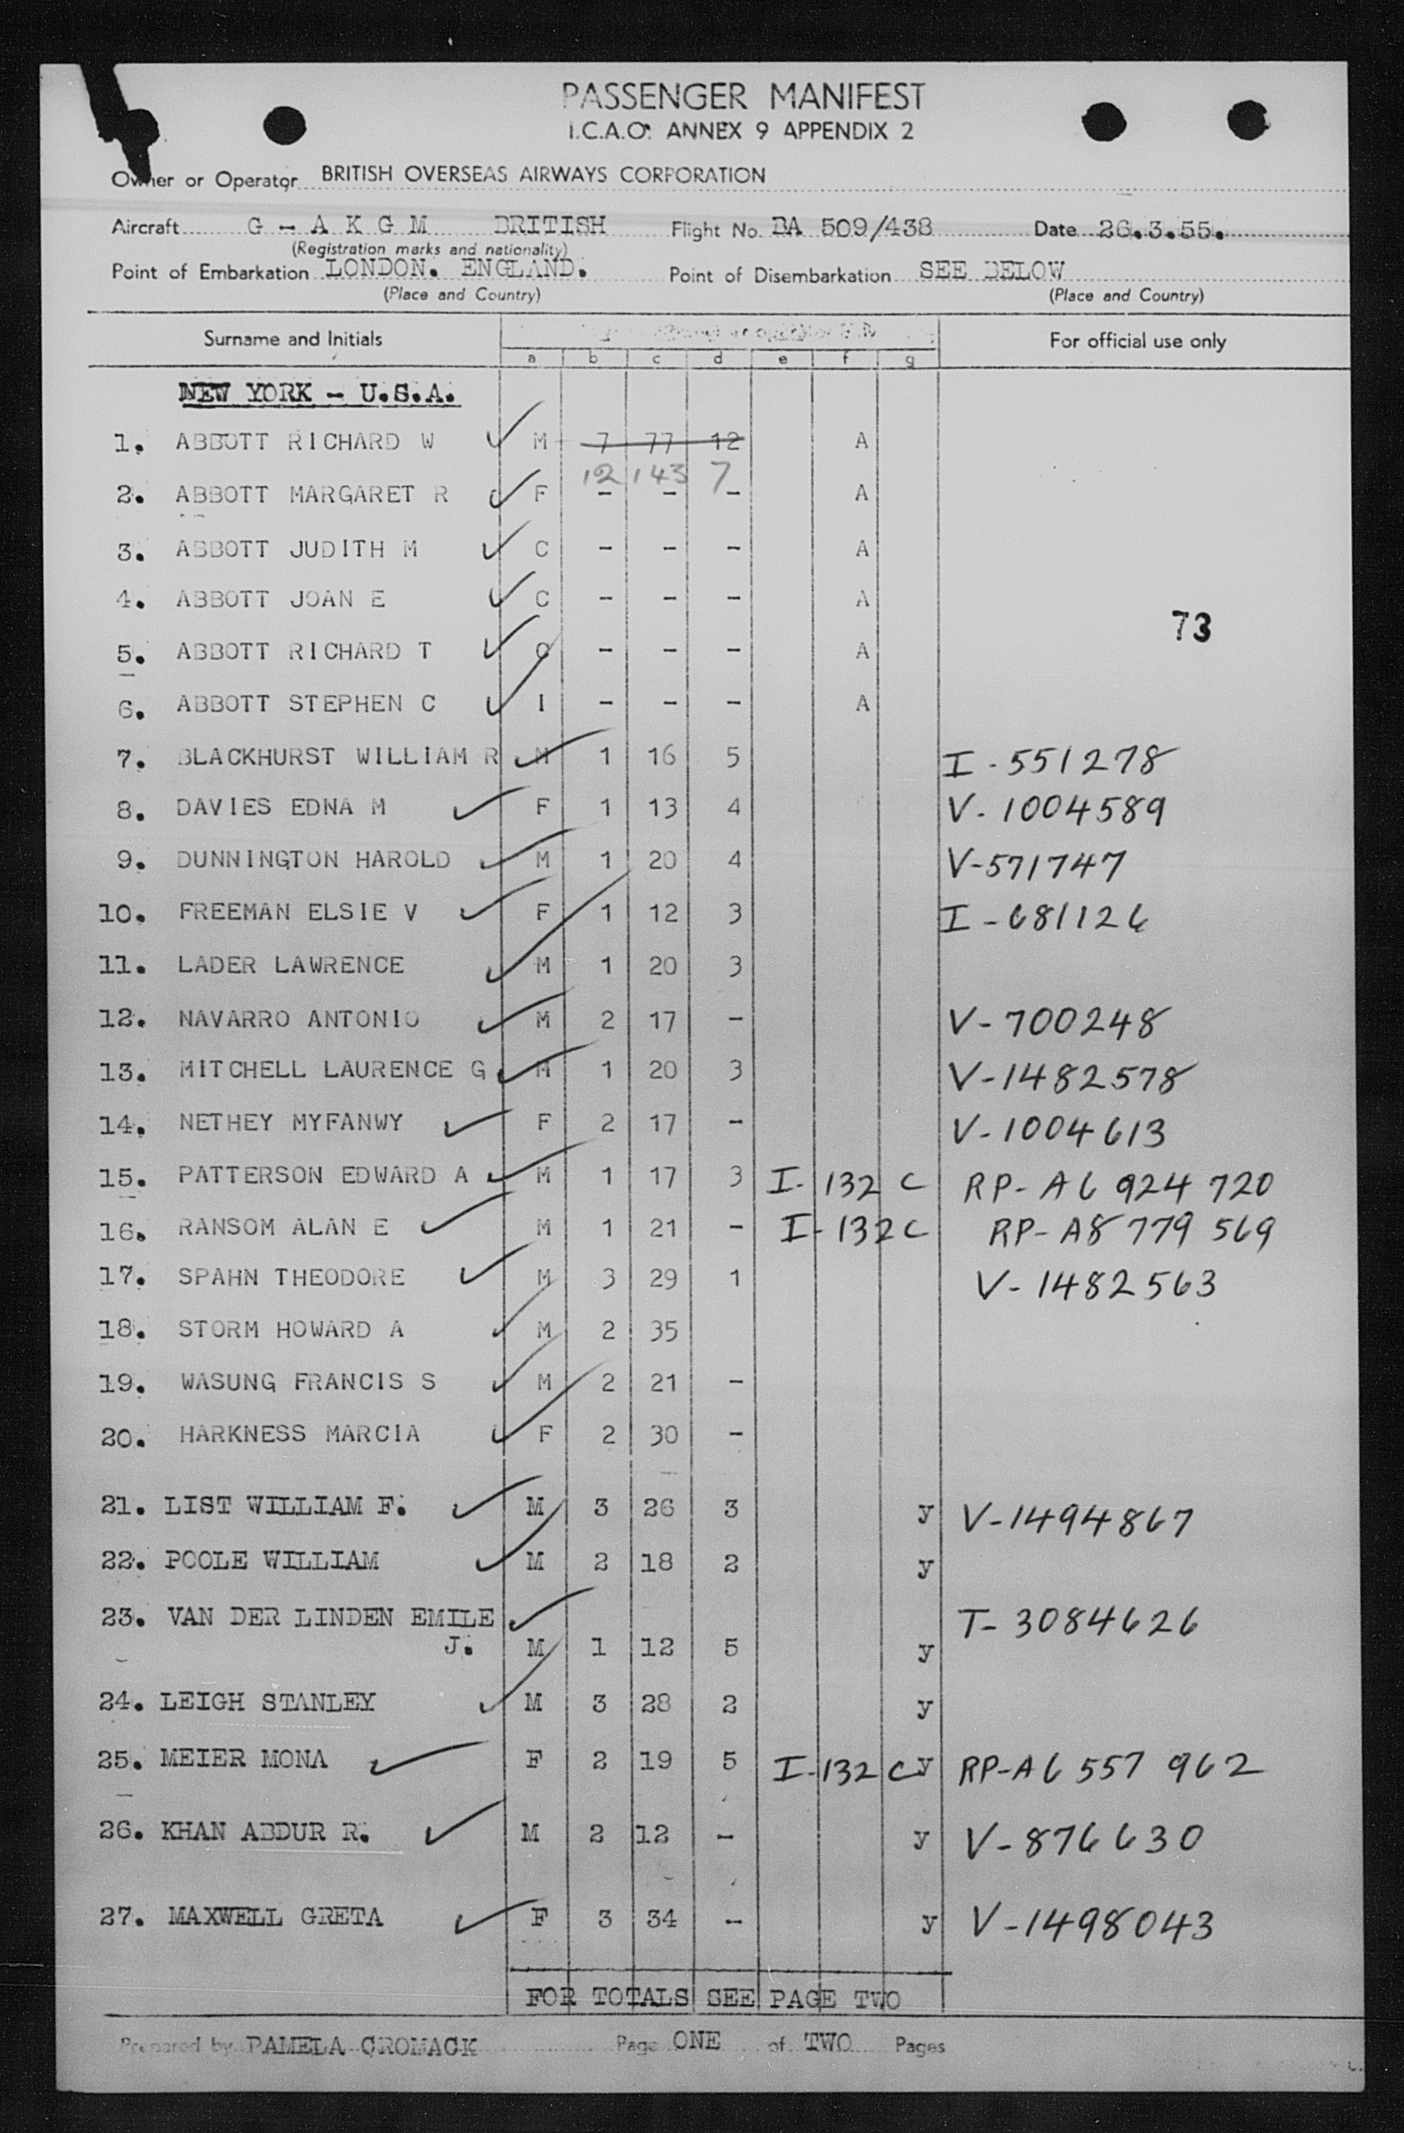 PASSENGER MANIFEST
I.C.A.O. ANNEX 9 APPENDIX 2
Owner or Operator BRITISH OVERSEAS AIRWAYS CORPORATION
Aircraft G - A K G M BRITISH Flight No. BA 509/438 Date 26.3.55.
(Registration marks and nationality)
Point of Embarkation LONDON. ENGLAND. Point of Disembarkation SEE BELOW
(Place and Country) (Place and Country)
Surname and Initials For official use only
a b c d e f g
NEW YORK - U.S.A.
1. ABBOTT RICHARD W M 7 77 12 A
12 143 7
2. ABBOTT MARGARET R F - - - A
3. ABBOTT JUDITH M C - - - A
4. ABBOTT JOAN E C - - - A
73
5. ABBOTT RICHARD T C - - - A
6. ABBOTT STEPHEN C I - - - A
7. BLACKHURST WILLIAM R M 1 16 5 I - 551278
8. DAVIES EDNA M F 1 13 4 V- 1004589
9. DUNNINGTON HAROLD M 1 20 4 V-571747
10. FREEMAN ELSIE V F 1 12 3 I - 681126
11. LADER LAWRENCE M 1 20 3
12. NAVARRO ANTONIO M 2 17 - V- 700248
13. MITCHELL LAURENCE G M 1 20 3 V-1482578
14. NETHEY MYFANWY F 2 17 - V- 1004613
15. PATTERSON EDWARD A M 1 17 3 I- 132 C RP- A6 924 720
16. RANSOM ALAN E M 1 21 - I-132C RP- A8 779 569
17. SPAHN THEODORE M 3 29 1 V- 1482563
18. STORM HOWARD A M 2 35
19. WASUNG FRANCIS S M 2 21 -
20. HARKNESS MARCIA F 2 30 -
21. LIST WILLIAM F. M 3 26 3 y V-1494867
22. POOLE WILLIAM M 2 18 2 y
23. VAN DER LINDEN EMILE T- 3084626
J. M 1 12 5 y
24. LEIGH STANLEY M 3 28 2 y
25. MEIER MONA F 2 19 5 I-132 C y RP-A6 557 962
26. KHAN ABDUR R. M 2 12 - y V-876630
27. MAXWELL GRETA F 3 34 - y V-1498043
FOR TOTALS SEE PAGE TWO
Prepared by PAMELA CROMACK Page ONE of TWO Pages